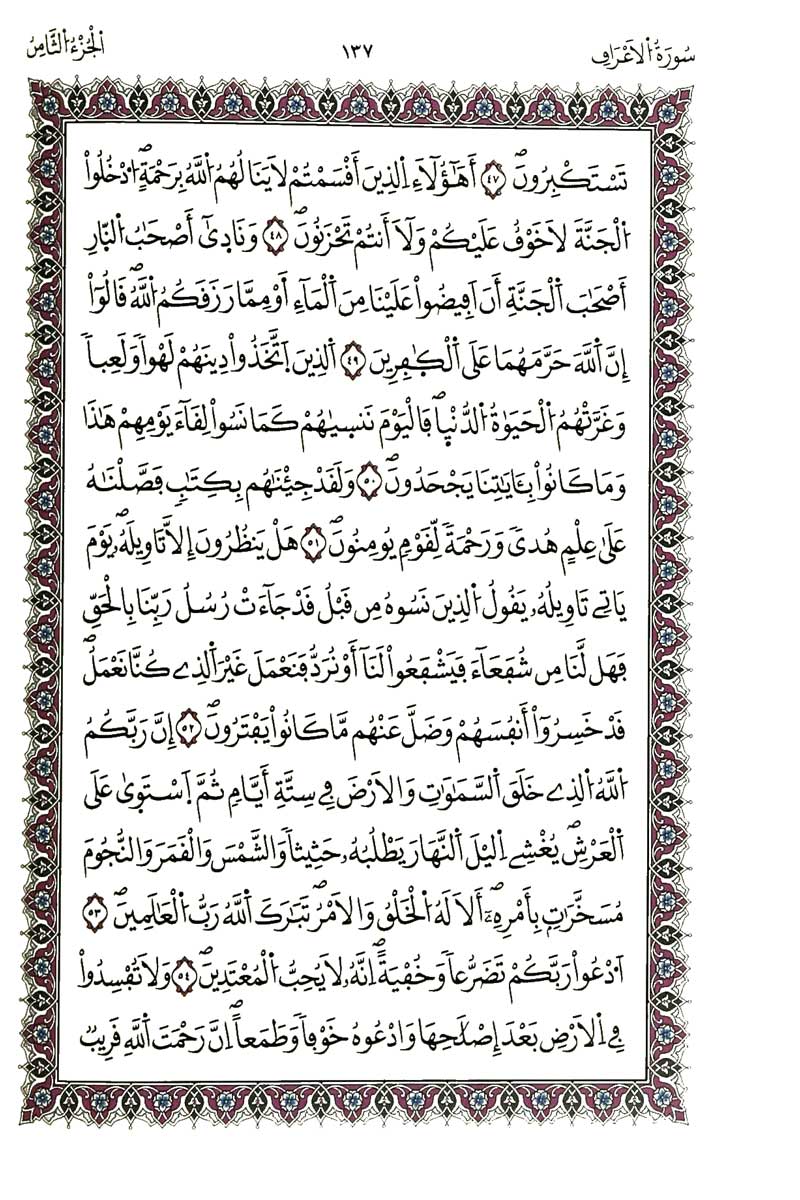 سُورَةُ الْأَعْرَافِ ١٣٧ الْجُزْءُ الثَّامِنُ
تَسْتَكْبِرُونَۖ ٤٧ أَهَٰٓؤُلَآءِ اِ۬لذِينَ أَقْسَمْتُمْ لَا يَنَالُهُمُ اُ۬للَّهُ بِرَحْمَةٍۖ اُ۟دْخُلُواْ
اُ۬لْجَنَّةَ لَا خَوْفٌ عَلَيْكُمْ وَلَآ أَنتُمْ تَحْزَنُونَۖ ٤٨ وَنَادِىٰٓ أَصْحَٰبُ اُ۬لنّ۪ارِ
أَصْحَٰبَ اَ۬لْجَنَّةِ أَنَ اَفِيضُواْ عَلَيْنَا مِنَ اَ۬لْمَآءِ اَ۬وْ مِمَّا رَزَقَكُمُ اُ۬للَّهُۖ قَالُوٓاْ
إِنَّ اَ۬للَّهَ حَرَّمَهُمَا عَلَى اَ۬لْكٰ۪فِرِينَ ٤٩ اَ۬لذِينَ اَ۪تَّخَذُواْ دِينَهُمْ لَهْواٗ وَلَعِباٗ
وَغَرَّتْهُمُ اُ۬لْحَيَوٰةُ اُ۬لدُّنْي۪اۖ فَالْيَوْمَ نَنس۪يٰهُمْ كَمَا نَسُواْ لِقَآءَ يَوْمِهِمْ هَٰذَا
وَمَا كَانُواْ بِـَٔايَٰتِنَا يَجْحَدُونَۖ ٥٠ وَلَقَدْ جِئْنَٰهُم بِكِتَٰبٖ فَصَّلْنَٰهُ
عَلَىٰ عِلْمٍ هُدىٗ وَرَحْمَةٗ لِّقَوْمٖ يُومِنُونَۖ ٥١ هَلْ يَنظُرُونَ إِلَّا تَاوِيلَهُۥۖ يَوْمَ
يَاتِے تَاوِيلُهُۥ يَقُولُ اُ۬لذِينَ نَسُوهُ مِن قَبْلُ قَدْ جَآءَتْ رُسُلُ رَبِّنَا بِالْحَقِّ
فَهَل لَّنَا مِن شُفَعَآءَ فَيَشْفَعُواْ لَنَآ أَوْ نُرَدُّ فَنَعْمَلَ غَيْرَ اَ۬لذِے كُنَّا نَعْمَلُۖ
قَدْ خَسِرُوٓاْ أَنفُسَهُمْ وَضَلَّ عَنْهُم مَّا كَانُواْ يَفْتَرُونَۖ ٥٢ إِنَّ رَبَّكُمُ
اُ۬للَّهُ اُ۬لذِے خَلَقَ اَ۬لسَّمَٰوَٰتِ وَالَارْضَ فِے سِتَّةِ أَيَّامٖ ثُمَّ اَ۪سْتَو۪ىٰ عَلَى
اَ۬لْعَرْشِۖ يُغْشِے اِ۬ليْلَ اَ۬لنَّهَارَ يَطْلُبُهُۥ حَثِيثاٗ وَالشَّمْسَ وَالْقَمَرَ وَالنُّجُومَ
مُسَخَّرَٰتِۢ بِأَمْرِهِۦٓۖ أَلَا لَهُ اُ۬لْخَلْقُ وَالَامْرُۖ تَبَٰرَكَ اَ۬للَّهُ رَبُّ اُ۬لْعَٰلَمِينَۖ ٥٣
اَ۟دْعُواْ رَبَّكُمْ تَضَرُّعاٗ وَخُفْيَةًۖ اِنَّهُۥ لَا يُحِبُّ اُ۬لْمُعْتَدِينَۖ ٥٤ وَلَا تُفْسِدُواْ
فِے اِ۬لَارْضِ بَعْدَ إِصْلَٰحِهَا وَادْعُوهُ خَوْفاٗ وَطَمَعاًۖ اِنَّ رَحْمَتَ اَ۬للَّهِ قَرِيبٞ